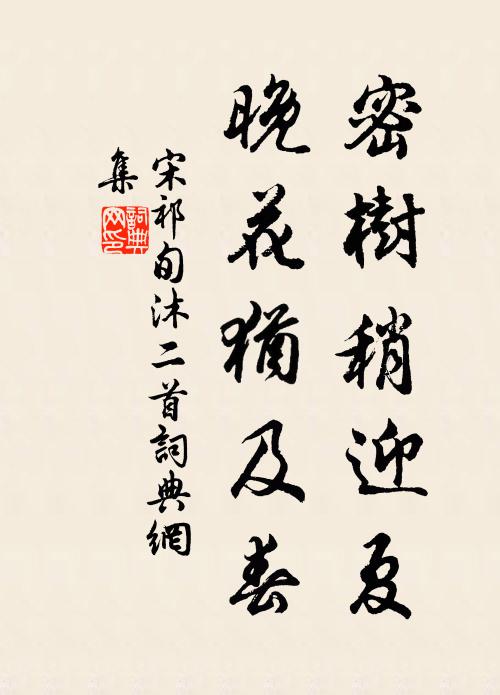 密樹稍迎夏
晚花猶及春
宋祁旬沐二首詞典網
集
詞典网印